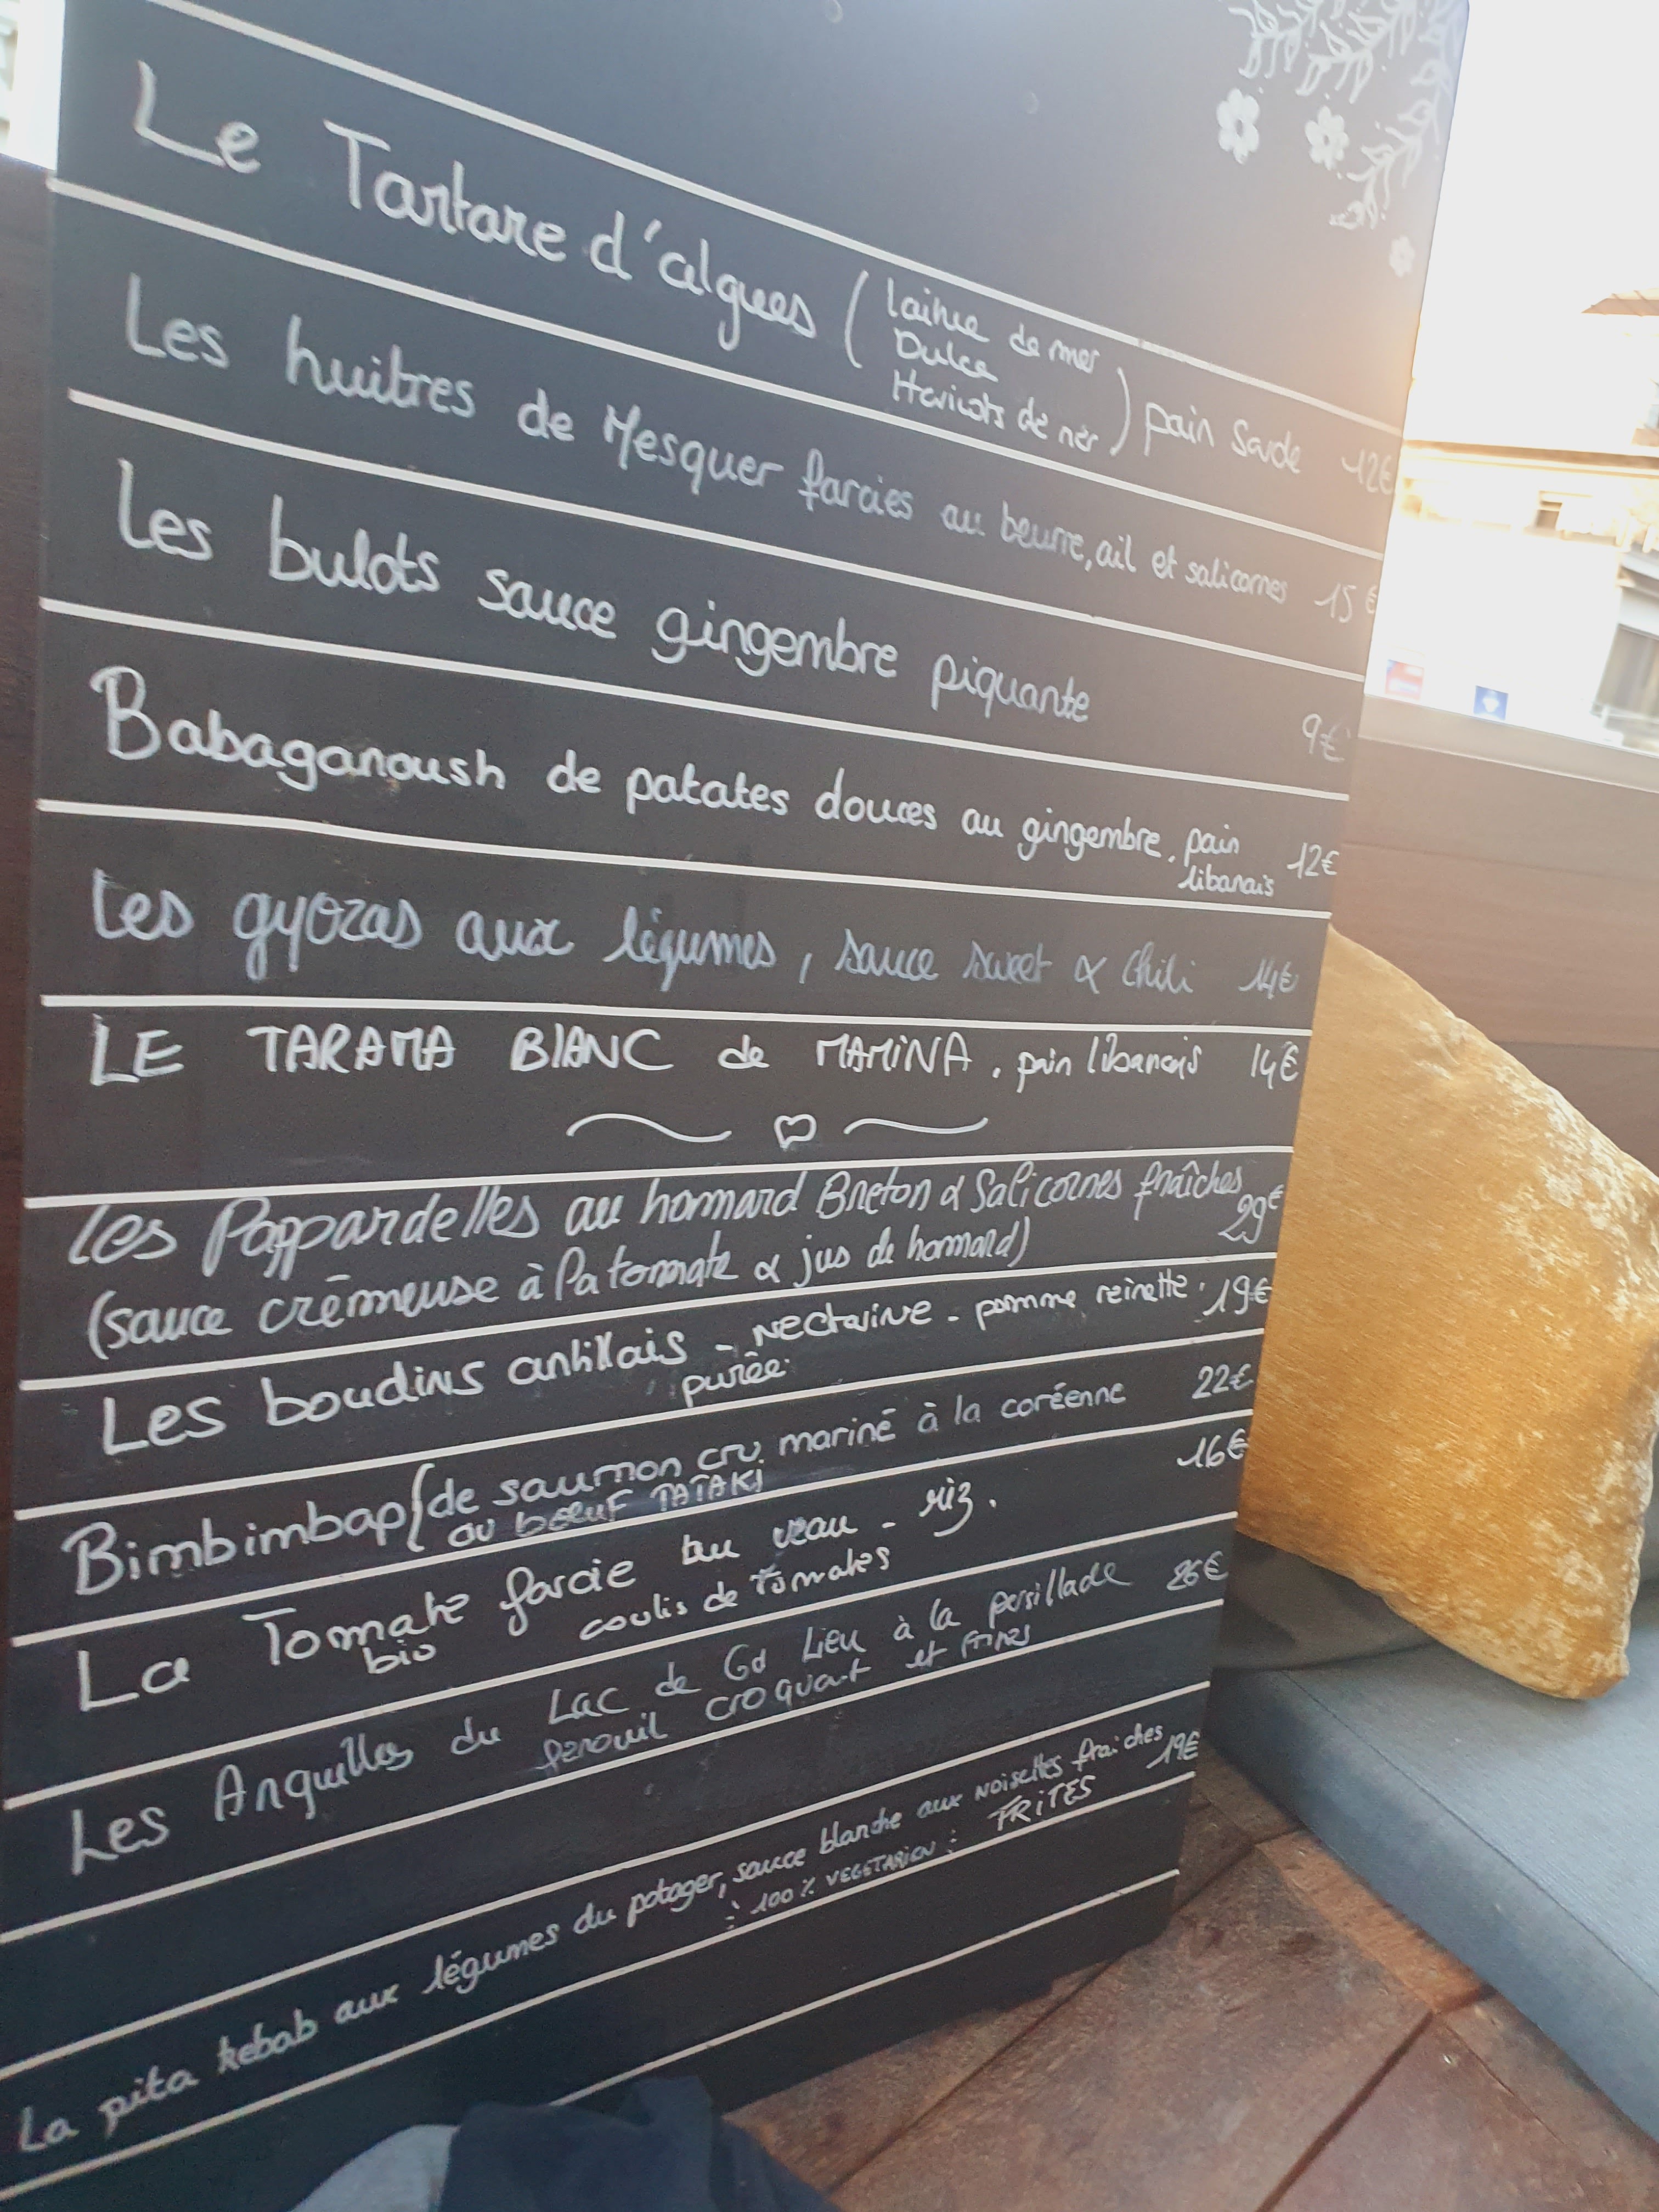 Le Tartare d'algues ( Laitue de mer
Dulce
Haricots de mer ) pain Sarde 12€
Les huitres de Mesquer farcies au beurre, ail et salicornes 15€
Les bulots sauce gingembre piquante 9€
Babaganoush de patates douces au gingembre. pain
libanais 12€
Les gyozas aux légumes, sauce sweet & chili 14€
LE TARAMA BLANC de MAMINA. pain libanais 14€
Les Pappardelles au hommard Breton & Salicornes fraîches
29€
(sauce crémeuse à la tomate & jus de hommard)
Les boudins antillais - Nectarine - pomme reinette. 19€
purée.
Bimbimbap { de saumon cru mariné à la coréenne 22€
ou boeuf TATAKI
La Tomate farcie au veau - riz. 16€
bio coulis de tomates
Les Anguilles du Lac de Gd Lieu à la persillade 26€
fenouil croquant et frites
La pita kebab aux légumes du potager, sauce blanche aux noisettes fraîches 19€
: 100% VEGETARIEN : FRITES